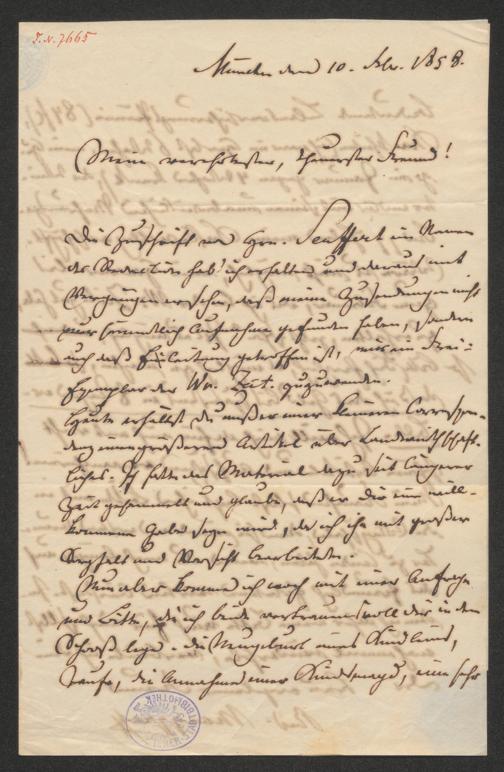 I.N. 7665
München den 10. Febr. 1858.
Mein verehrtester, theuerster Freund!
Die Zuschrift von Hrn. Seuffert im Namen
der Redaction hab' ich erhalten und daraus mit
Vergnügen ersehen, daß meine Zusendungen nicht
nur freundlich Aufnahme gefunden haben, sondern
auch daß Einleitung getroffen ist, mir ein Frei-
Exemplar der Wr. Zeit. zuzuwenden.
Heute erhältst du außer einer kleineren Correspon-
denz einen größeren Artikel über Landwirthschaft-
liches. Ich hatte das Material dazu seit längerer
Zeit gesammelt und glaube, daß er dir eine will-
kommene Gabe seyn wird, da ich ihn mit großer
Sorgfalt und Vorsicht bearbeitete.
Nun aber komme ich noch mit einer Anfrage
und Bitte, die ich beide vertrauensvoll dir in den
Schooß lege. Die Neugeburt eines Kindleins,
Taufe, die Annahme einer Kindsmagd, eine sehr